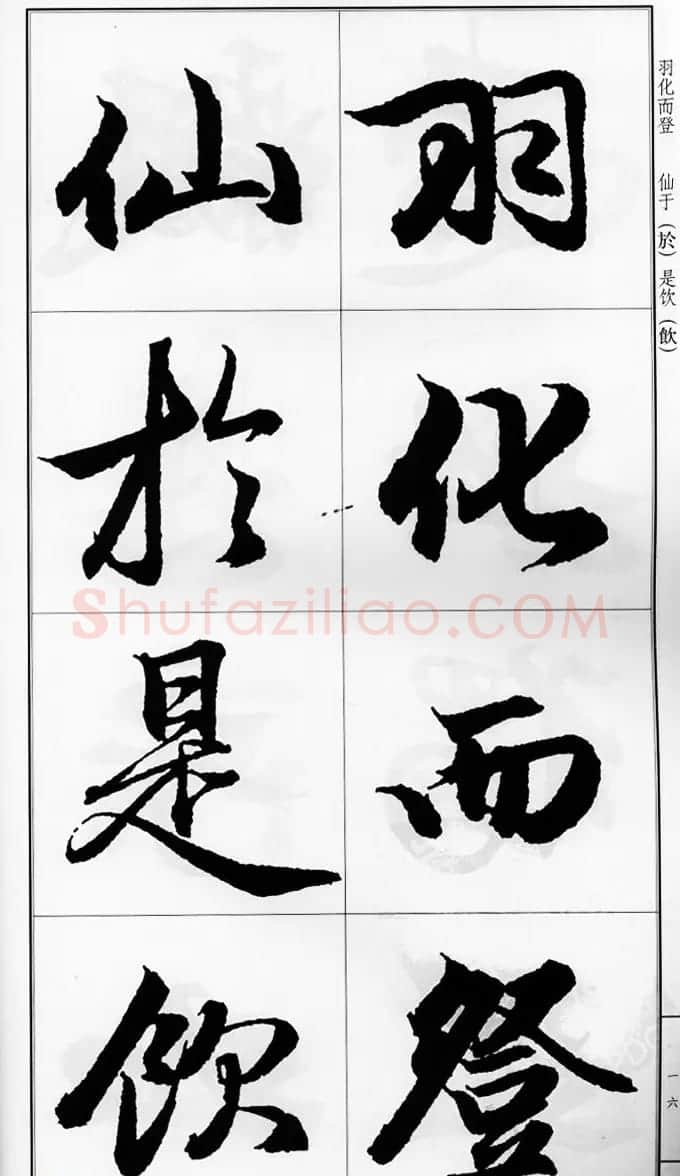 羽化而登 仙于(於)是饮(飲)
羽化而登
仙於是飲
Shufaziliao.COM
一六